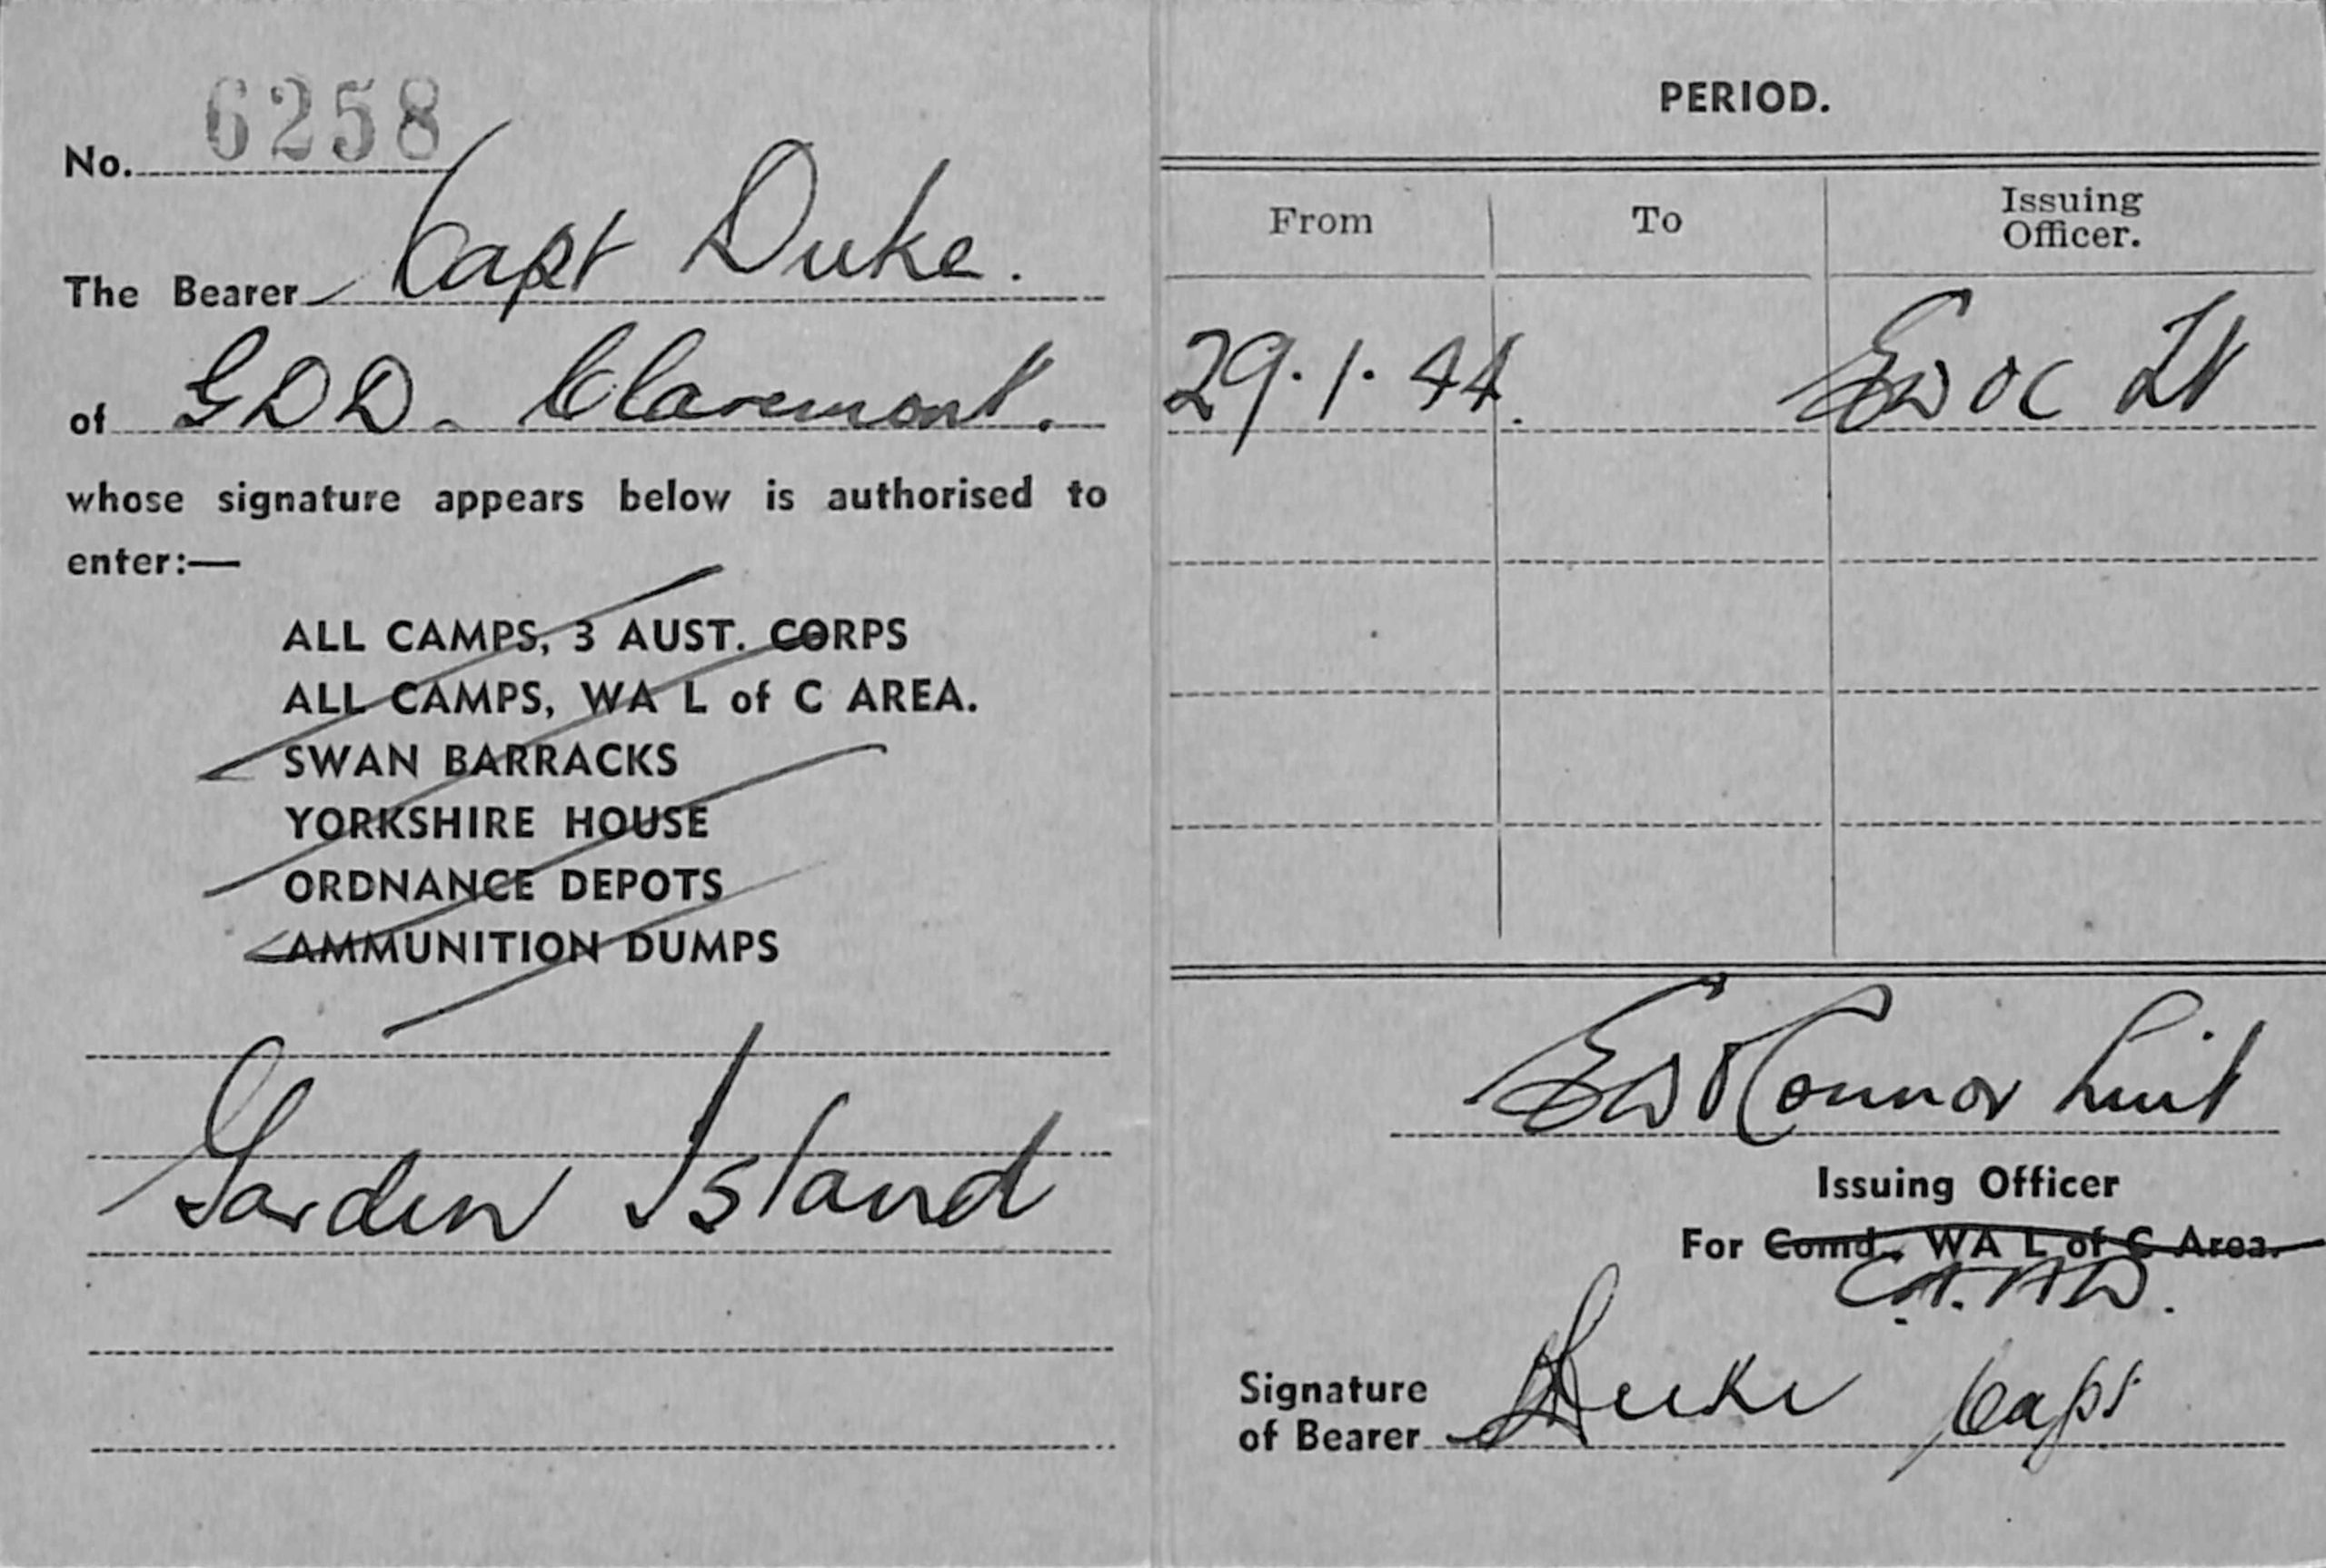 No. 6258
The Bearer Capt Duke.
of GDD. Claremont.
whose signature appears below is authorised to
enter:—
ALL CAMPS, 3 AUST. CORPS
ALL CAMPS, WA L of C AREA.
SWAN BARRACKS
YORKSHIRE HOUSE
ORDNANCE DEPOTS
AMMUNITION DUMPS
Garden Island
PERIOD.
From To Issuing Officer.
29.1.44. EWOC Lt
EW O'Connor Lieut
Issuing Officer
For Comd., WA L of C Area.
Signature
of Bearer Duke Capt